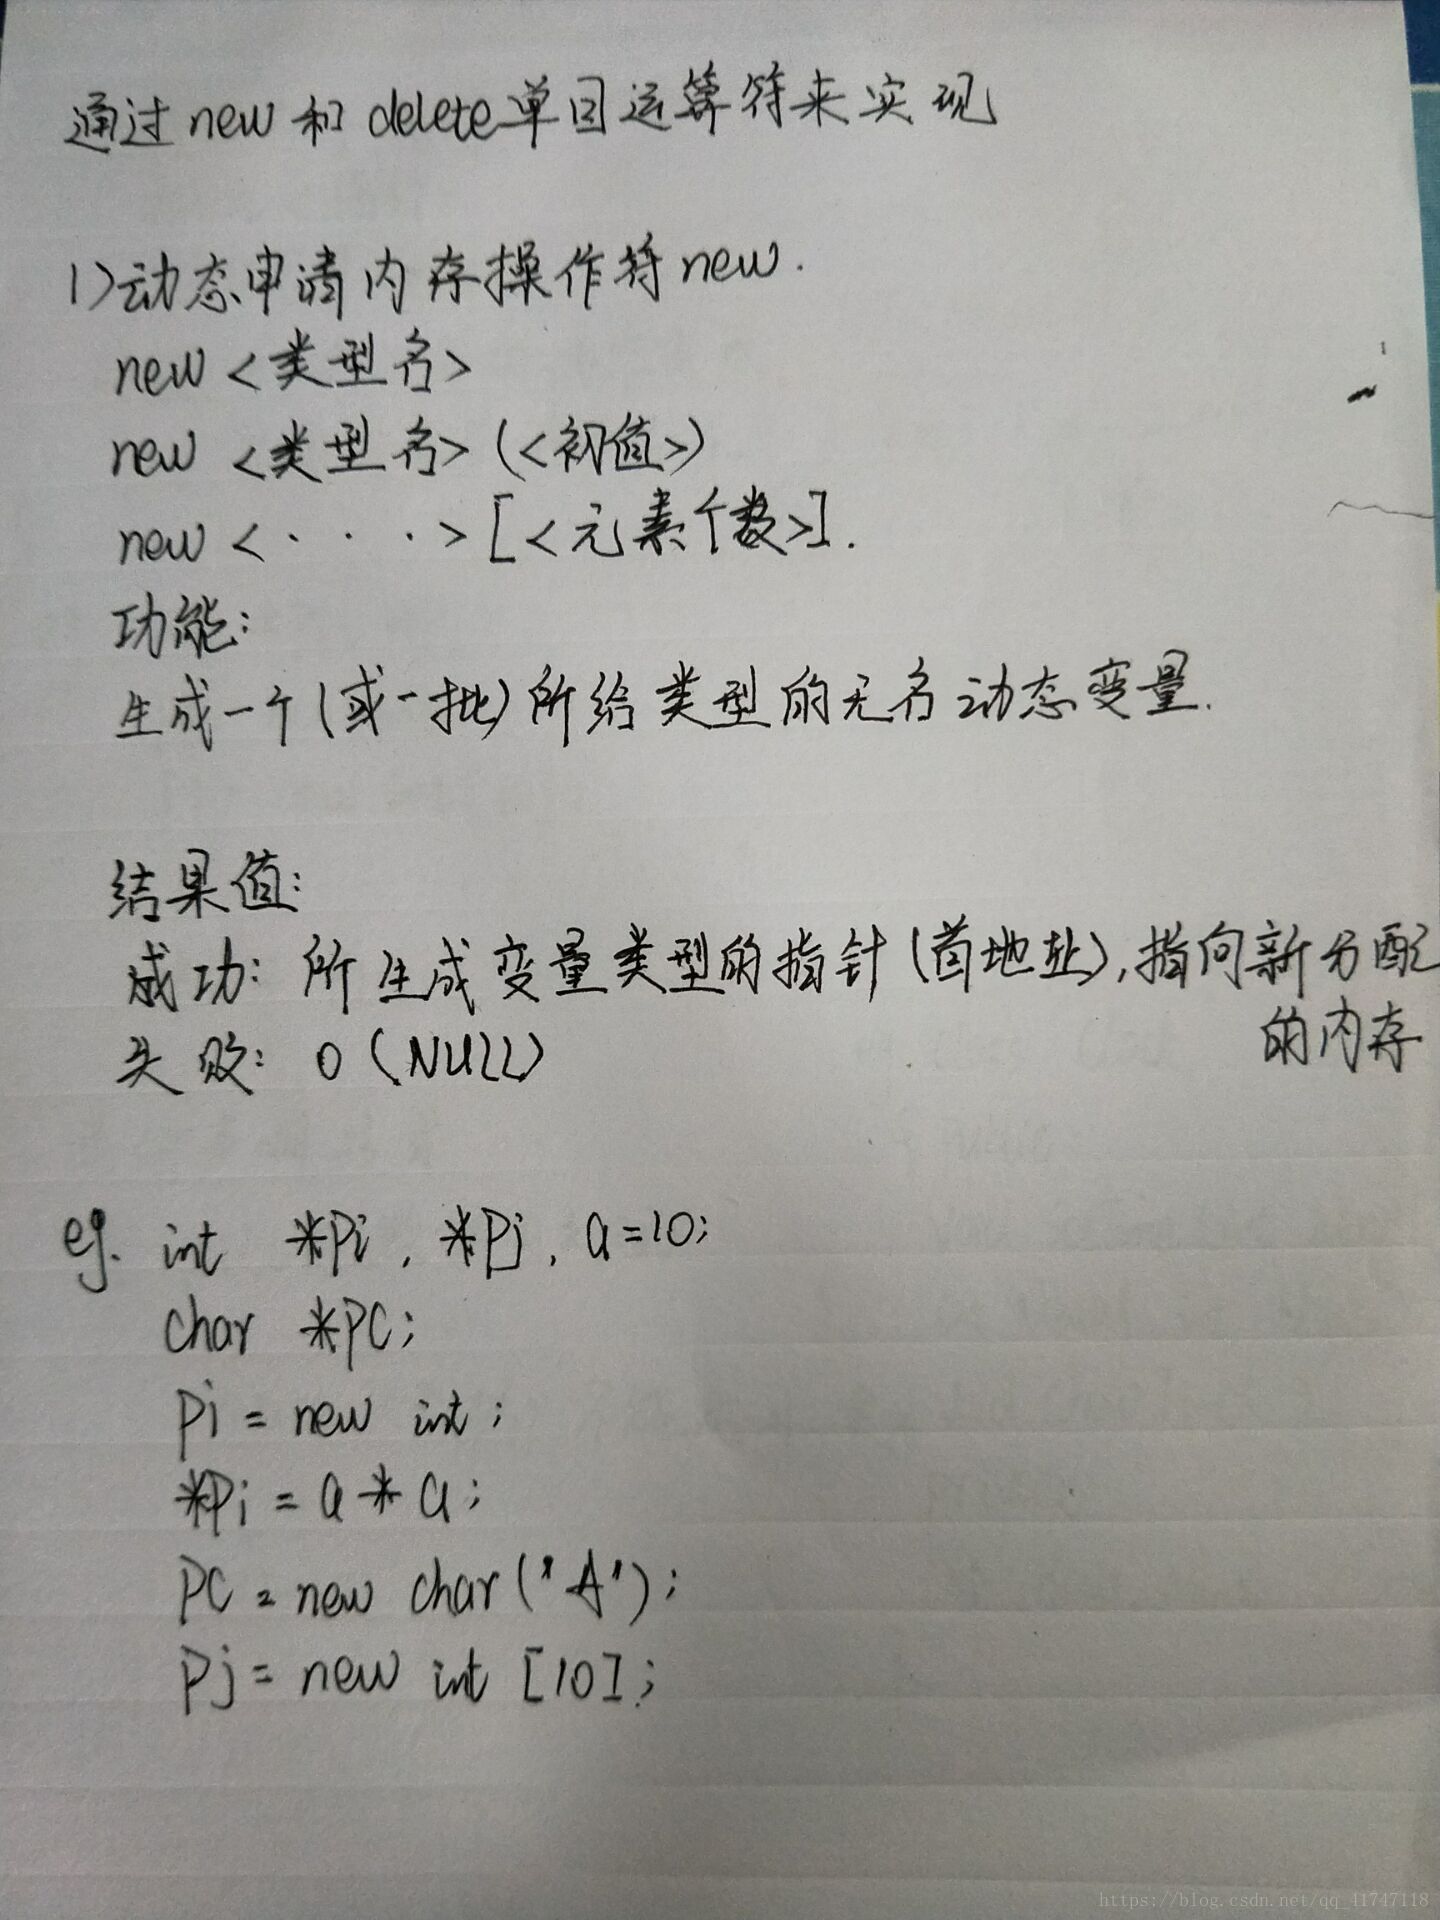 通过new和delete单目运算符来实现
1)动态申请内存操作符new.
new <类型名>
new <类型名> (<初值>)
new <···> [<元素个数>].
功能:
生成一个(或一批)所给类型的无名动态变量.
结果值:
成功: 所生成变量类型的指针(首地址),指向新分配
的内存
失败: 0 (NULL)
eg. int *Pi, *Pj, a=10;
char *PC;
Pi = new int;
*Pi = a * a;
PC = new char('A');
Pj = new int [10];
https://blog.csdn.net/qq_41747118